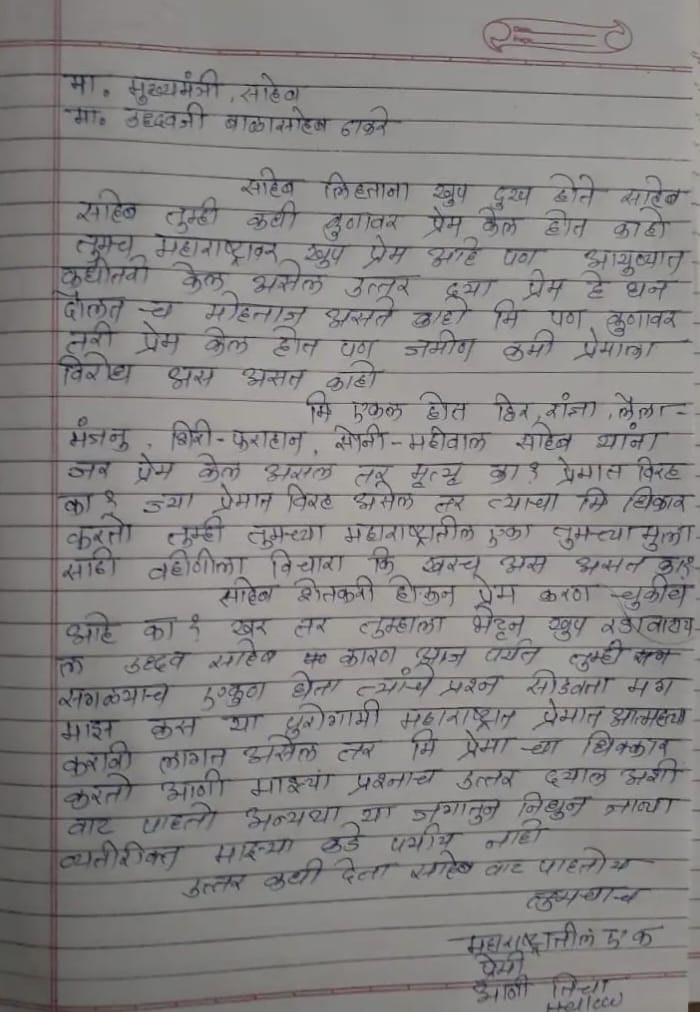 मा. मुख्यमंत्री, साहेब
मा. उध्दवजी बाळासाहेब ठाकरे
साहेब लिहताना खुप दुख होते साहेब
साहेब तुम्ही कधी कुणावर प्रेम केल होत काहो
तुमच महाराष्ट्रावर खुप प्रेम आहे पण आयुष्यात
कधीतरी केल असेल उत्तर द्या प्रेम हे धन
दौलत च मोहताज असते काहो मि पण कुणावर
तरी प्रेम केल होत पण जमीण कमी प्रेमाला
विरोध अस असत काहो
मि एकल होत हिर, रांजा, लैला-
मंजनु, शिरी-फराहान, सोनी-महीवाल साहेब यांना
जर प्रेम केल असल तर मृत्यू का? प्रेमात विरह
का? ज्या प्रेमात विरह असेल तर त्याचा मि धिकार
करतो तुम्ही तुमच्या महाराष्ट्रातील एका तुमच्या मुला
साठी वहीणीला विचारा कि खरच अस असत का?
साहेब शेतकरी होऊन प्रेम करण चुकीच
आहे का? खर तर तुम्हाला भेटून खुप रडावावाटाय
ल उध्दव साहेब कारण आज पर्यंत तुम्ही
सगळ्याच एकुण घेता त्यांचे प्रश्न सोडवता मग
माझ कस या पुरोगामी महाराष्ट्रात प्रेमात आत्महत्या
करावी लागत असेल तर मि प्रेमा चा धिक्कार
करतो आणी माझ्यां प्रश्नाच उत्तर द्याल अशी
वाट पाहतो अन्यथा या जगातुन निघुन जाव्या
व्यतीरीक्त माझ्या कडे पर्याय नाही
उत्तर कधी देता साहेब वाट पाहतोय
तुमचाच
महाराष्ट्रातील एक
प्रेमी
आणी तिचा